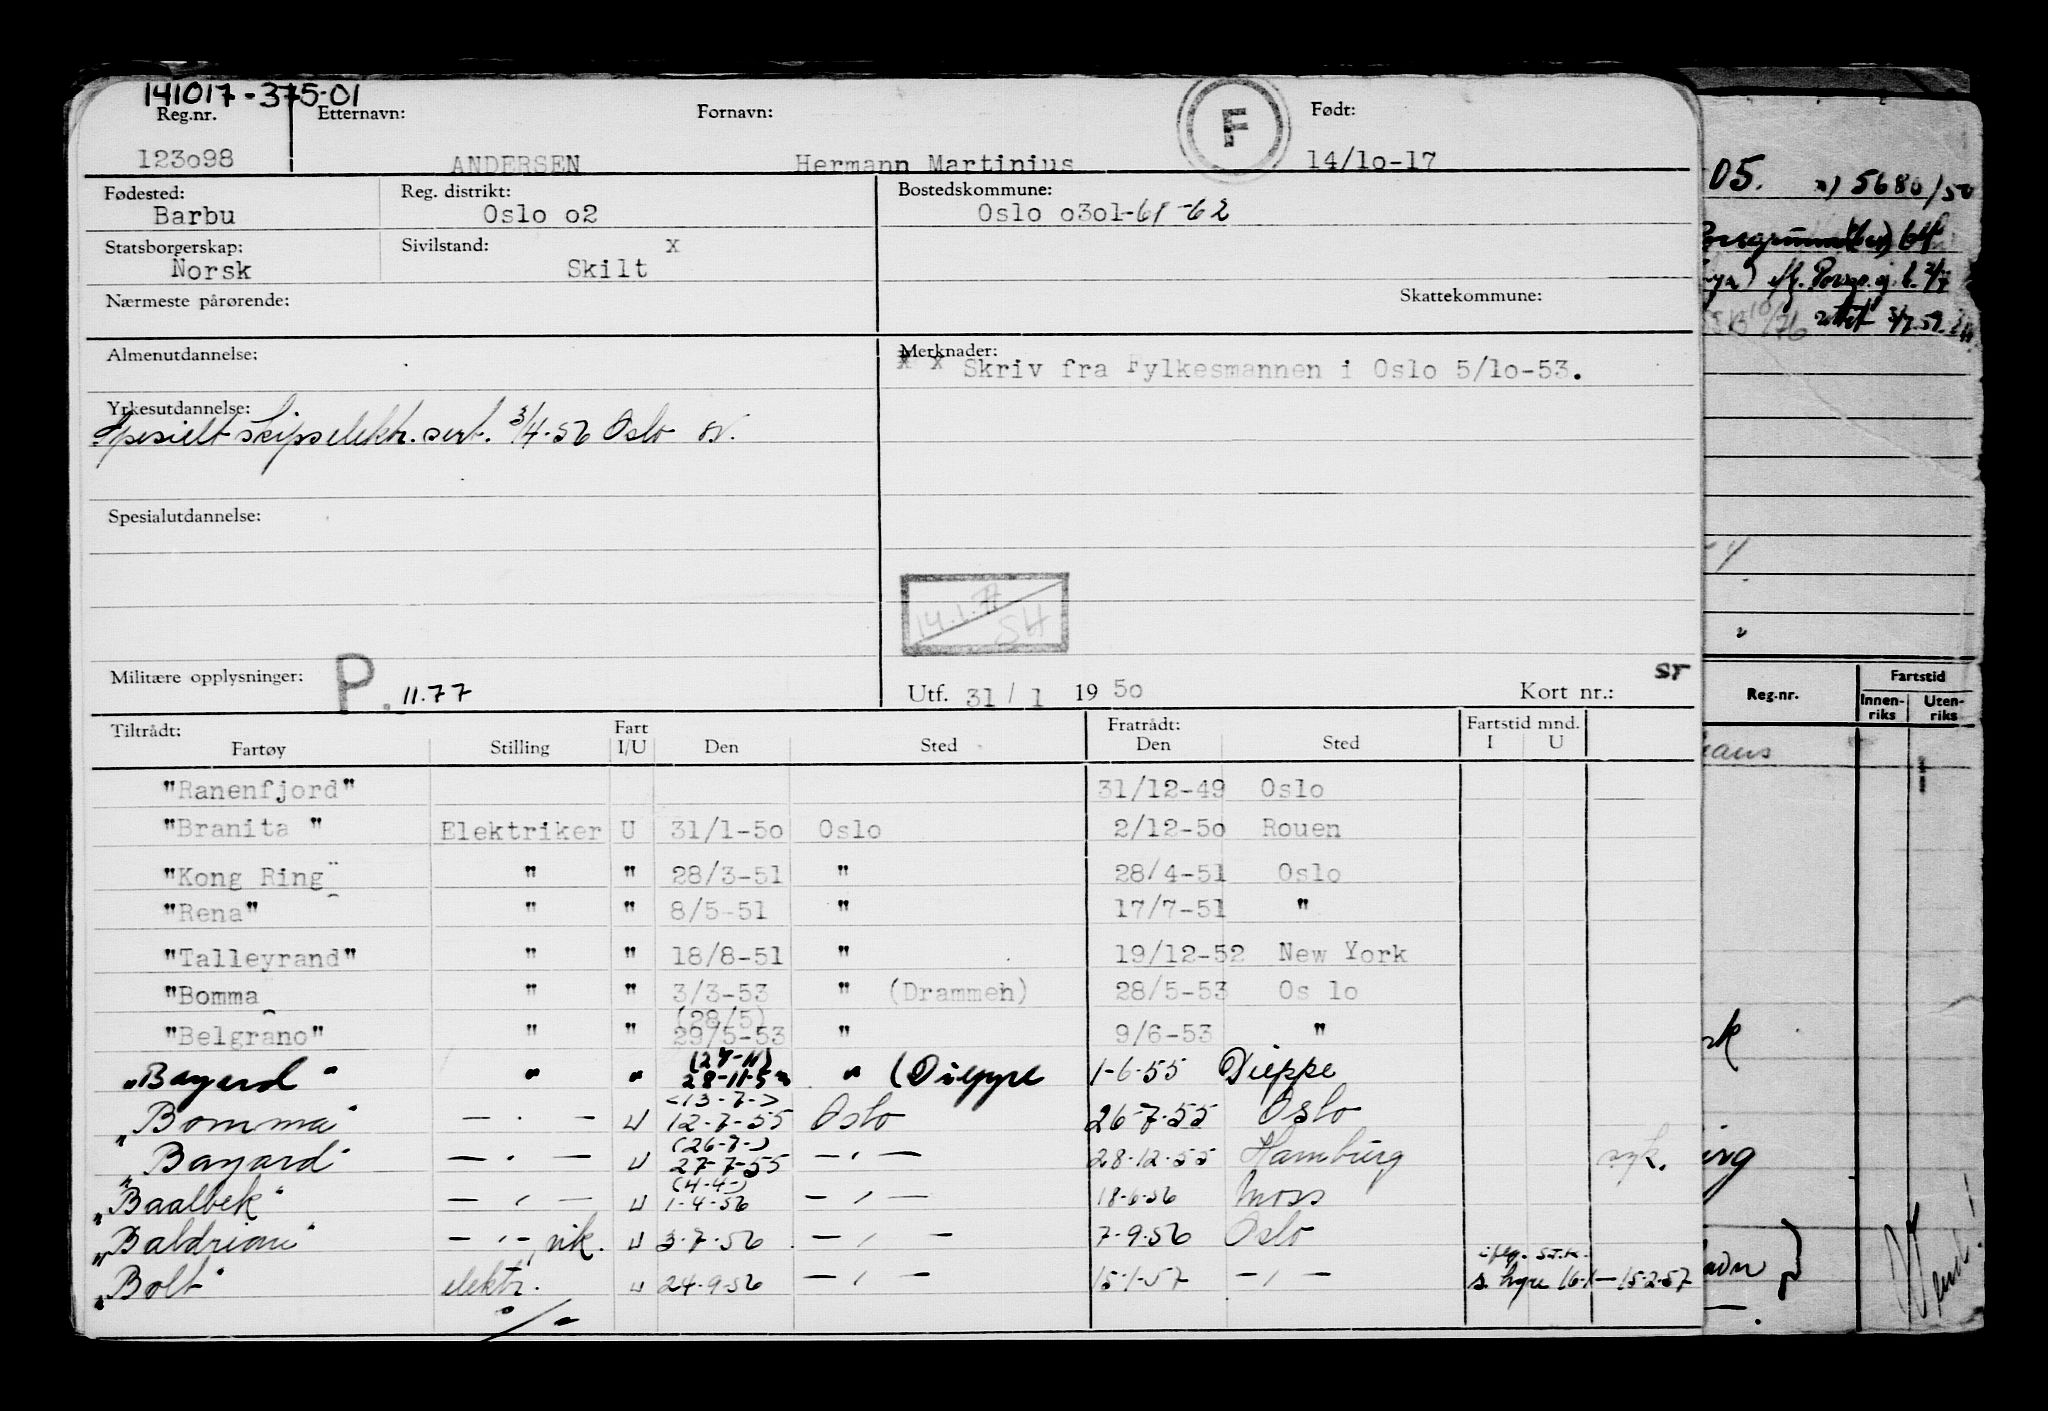 141017-375-01
Reg.nr. Etternavn: Fornavn: F Født:
123o98 ANDERSEN Hermann Martinius 14/1o-17
Fødested: Reg. distrikt: Bostedskommune:
Barbu Oslo o2 Oslo o3o1-61-62
Statsborgerskap: Sivilstand: x
Norsk Skilt
Nærmeste pårørende: Skattekommune:
Almenutdannelse: Merknader:
x x Skriv fra Fylkesmannen i Oslo 5/1o-53.
Yrkesutdannelse:
Spesielt skipselektr. sert. 3/4-56 Oslo
Spesialutdannelse:
14.1. SH
Militære opplysninger: P. 11.77 Utf. 31/1 1950 Kort nr.: ST
Tiltrådt: Fart Fratrådt: Fartstid mnd.
Fartøy Stilling I/U Den Sted Den Sted I U
"Ranenfjord" 31/12-49 Oslo
"Branita " Elektriker U 31/1-5o Oslo 2/12-5o Rouen
"Kong Ring" " " 28/3-51 " 28/4-51 Oslo
"Rena" " " 8/5-51 " 17/7-51 "
"Talleyrand" " " 18/8-51 " 19/12-52 New York
"Bomma " " 3/3-53 " (Drammen) 28/5-53 Os lo
(28/5)
"Belgrano" " " 29/5-53 " 9/6-53 "
(27-11)
"Bayard" " " 28-11-5 " (Dieppe 1-6-55 Dieppe
(13-7-)
"Bomma" — " — U 12-7-55 Oslo 26-7-55 Oslo
(26-7-)
"Bayard" — " — U 27-7-55 — " — 28-12-55 Hamburg syk.
(4-4-)
"Baalbek" — " — U 1-4-56 — " — 18-6-56 Moss
"Baldrian" — " —, vik. U 3-7-56 — " — 7-9-56 Oslo
iflg. S.T.K.
"Bolt" elektr. U 24-9-56 — " — 15-1-57 — " — s. hyre 16-1 — 15-2-57
05. x) 5680/50
Reg.nr. Fartstid
Innenriks Utenriks